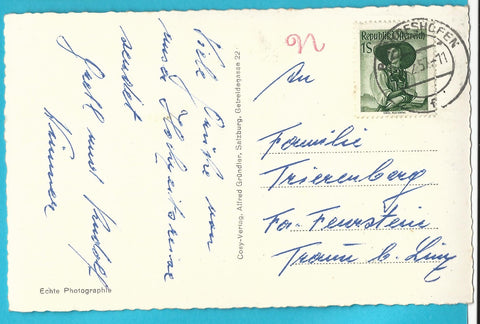 Viele Grüße von
unserer Hochzeitsreise
sendet
Gretl und Rudolf
Wimmer
Echte Photographie
Cosy-Verlag, Alfred Gründler, Salzburg, Getreidegasse 22
Republik Österreich
1S
An
Familie
Trierenberg
Fa. Feurstein
Traun b. Linz